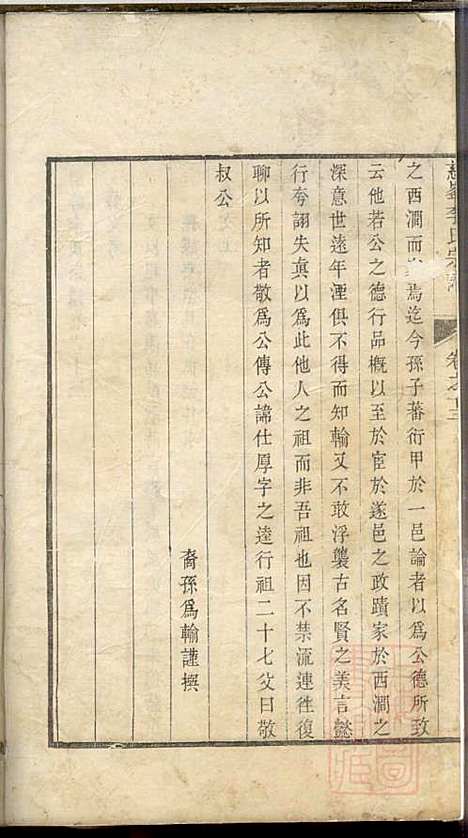 李氏宗譜
卷之十三
之西澗而焉迄今孫子蕃衍甲於一邑論者以為公德所致
云他若公之德行品概以至於宦於遂邑之政蹟家於西澗之
深意世遠年湮俱不得而知輸又不敢浮襲古名賢之美言懿
行夸詡失眞以為此他人之祖而非吾祖也因不禁流連徃復
聊以所知者敬為公傳公諱仕厚字之逵行祖二十七父曰敬
叔公
裔孫為輸謹撰